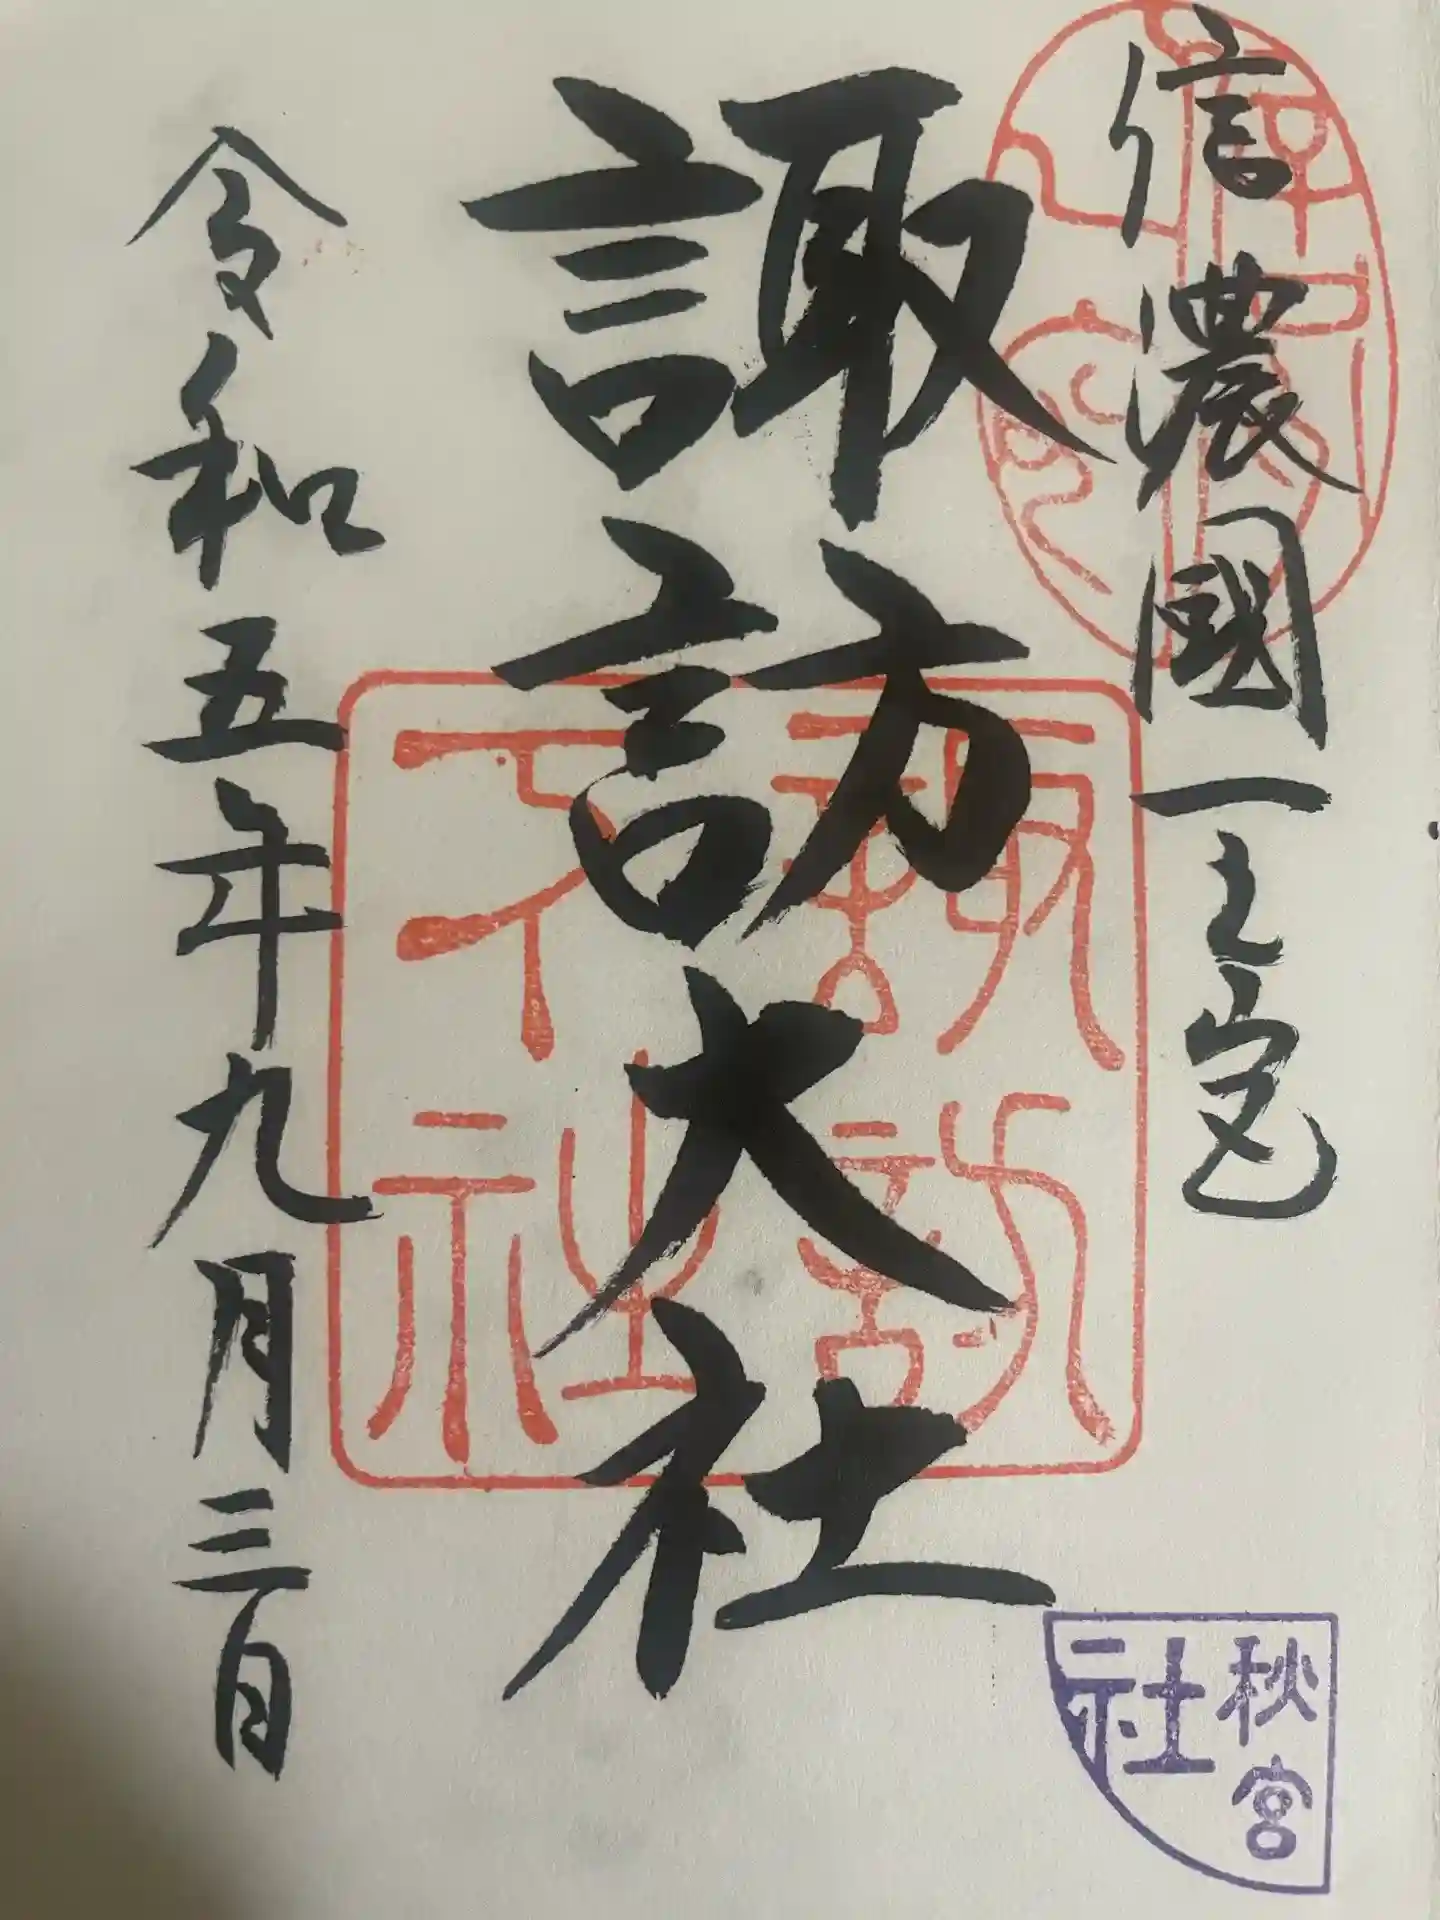 信濃國一之宮
諏訪大社
令和五年九月三日
諏訪
大社
秋宮
社